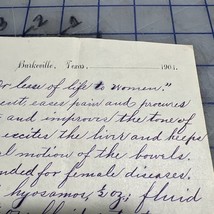 Burkeville, Texas, 1904.
or less of life to women."
cut, eases pain and procures
s and improves the tone of
excites the liver and keeps
al motion of the bowels.
nded for female diseases.
hyosamor, ℥ oz; fluid